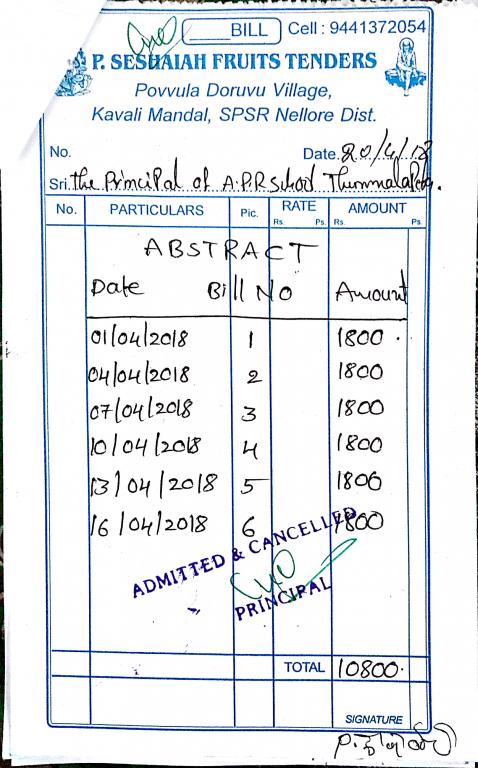 BILL Cell : 9441372054
P. SESHAIAH FRUITS TENDERS
Povvula Doruvu Village,
Kavali Mandal, SPSR Nellore Dist.
No. Date. 20/4/18
Sri. The Principal of A.P.R School
No. PARTICULARS Pic. RATE AMOUNT
Rs. Ps. Rs. Ps.
ABSTRACT
Date Bill No Amount
01/04/2018 1 1800
04/04/2018 2 1800
07/04/2018 3 1800
10/04/2018 4 1800
13/04/2018 5 1800
16/04/2018 6 1800
ADMITTED & CANCELLED
PRINCIPAL
TOTAL 10800
SIGNATURE